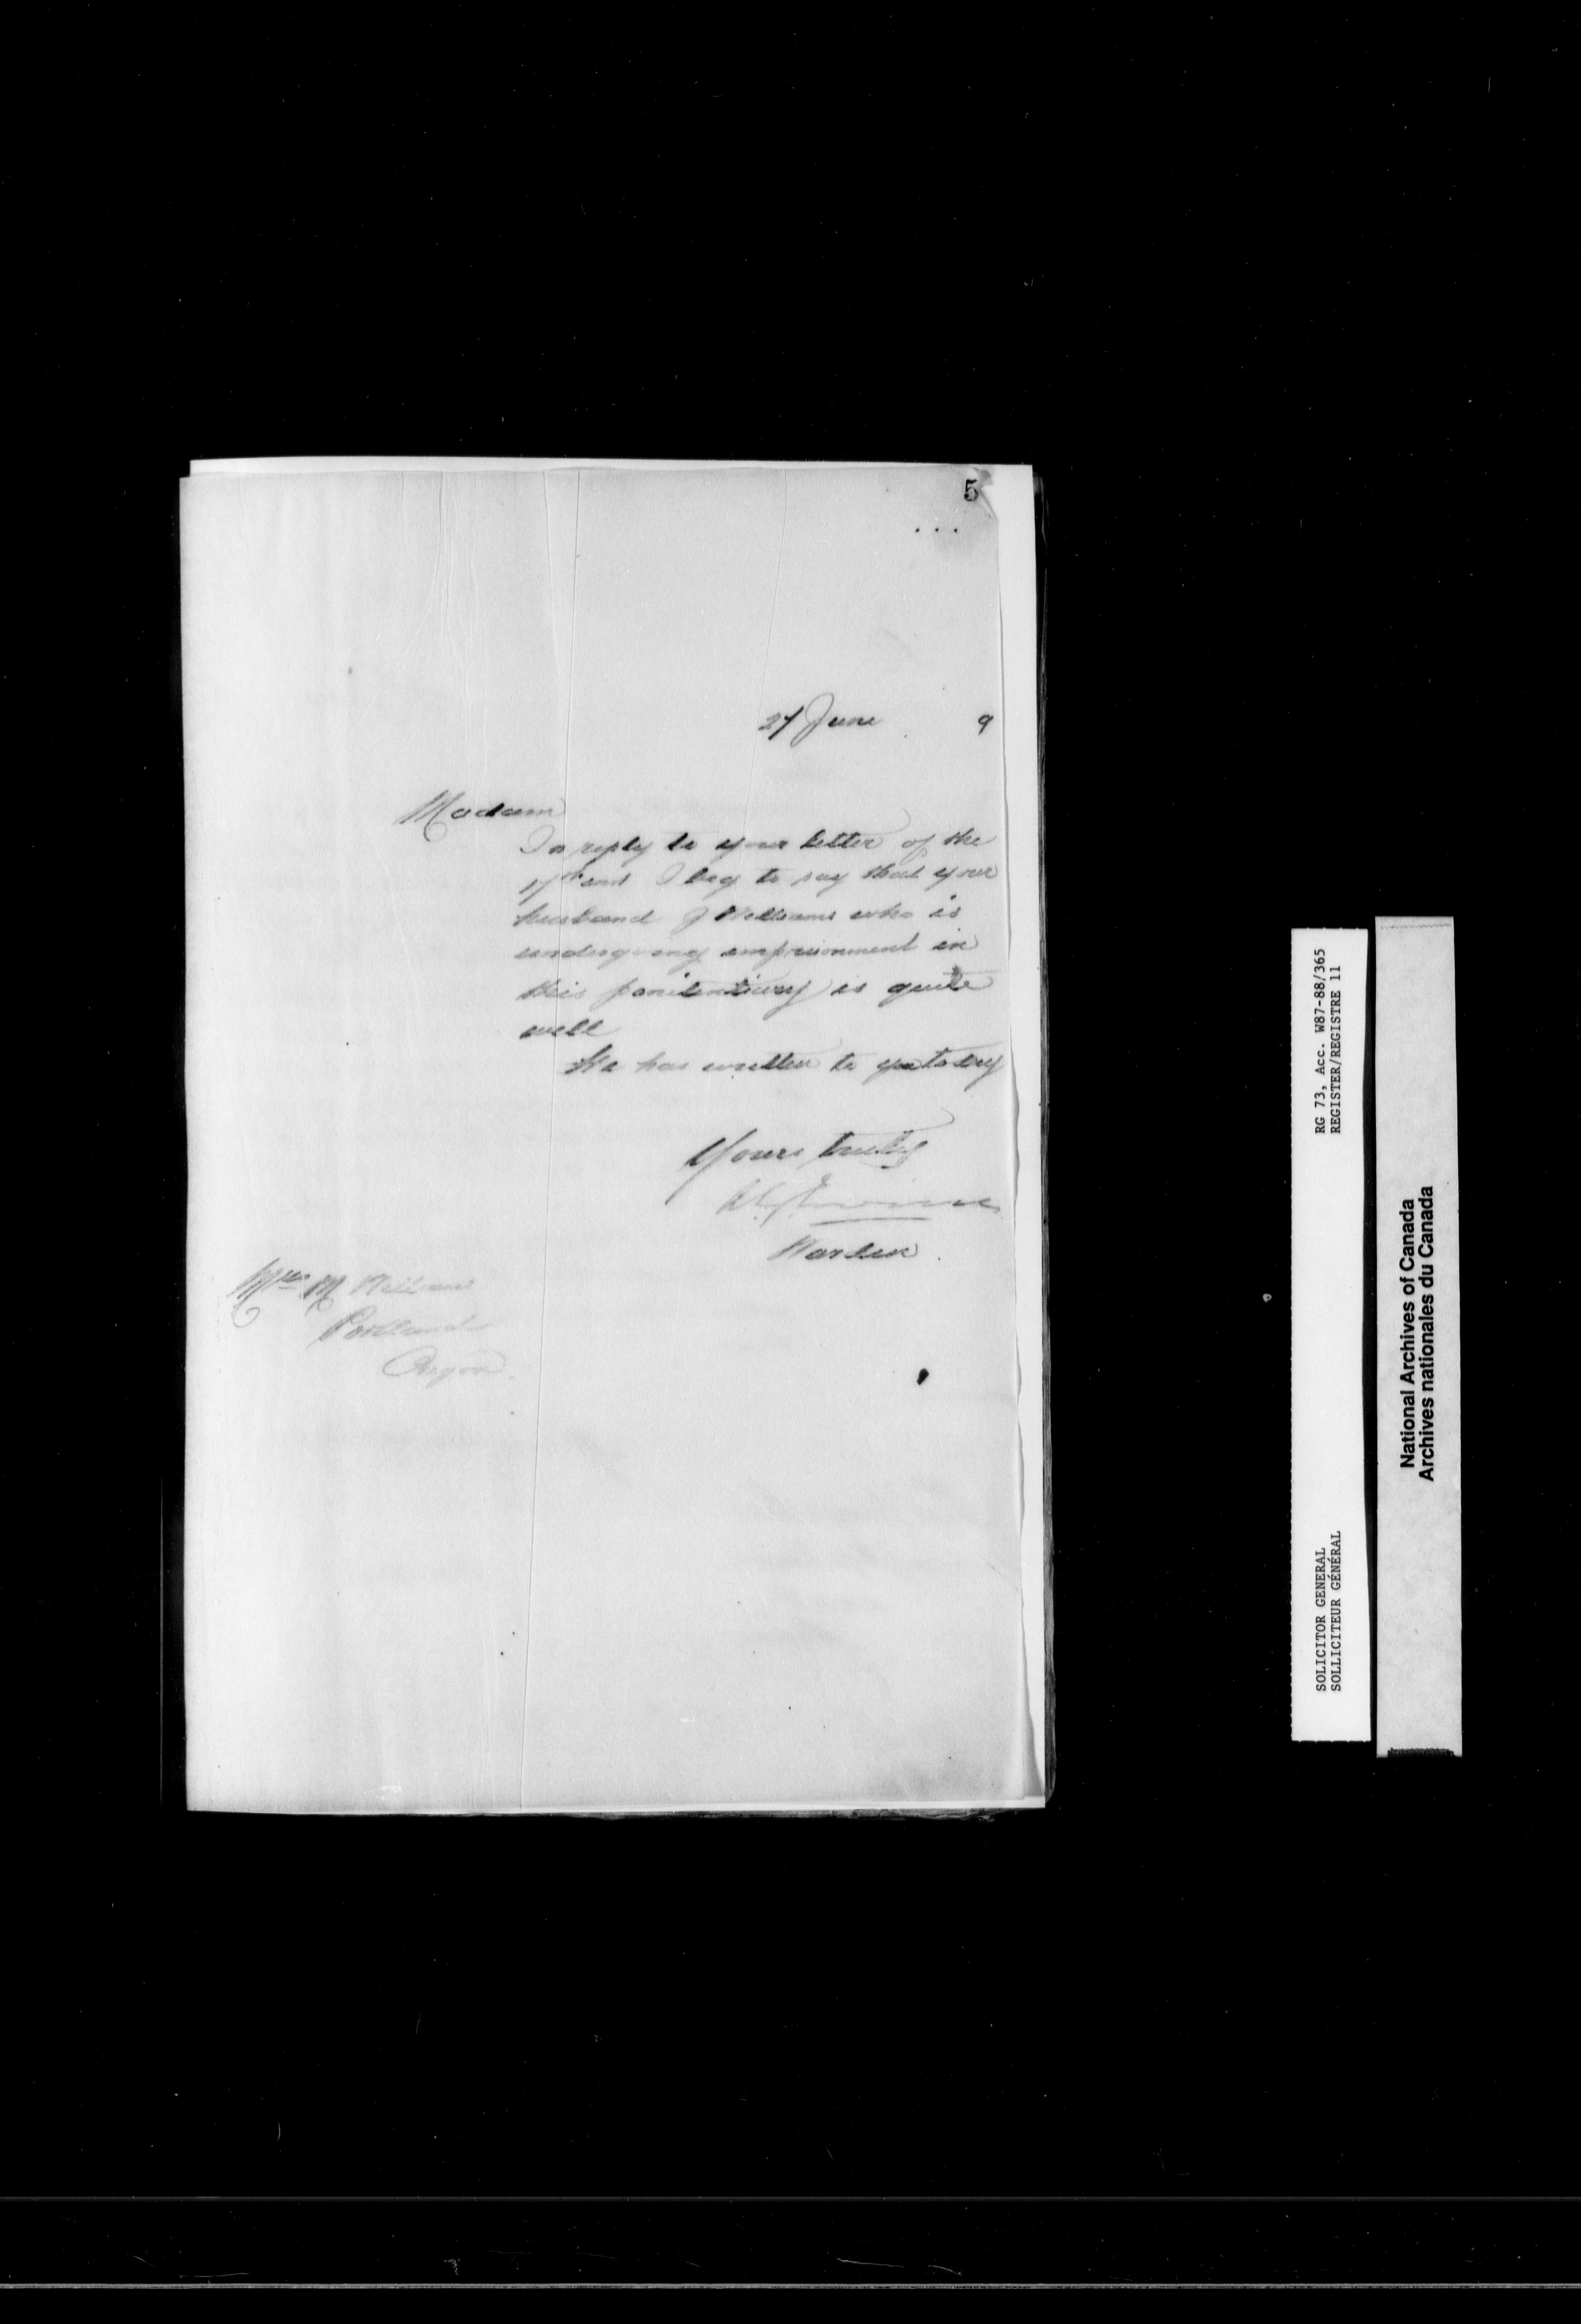 5
27 June 9
Madam
In reply to your letter of the
17th inst I beg to say that your
husband J Williams who is
undergoing imprisonment in
this penitentiary is quite
well
He has written to you today
Yours truly
Irvine
Warden
Mrs M Williams
Portland
Oregon.
SOLICITOR GENERAL RG 73, Acc. W87-88/365
SOLLICITEUR GÉNÉRAL REGISTER/REGISTRE 11
National Archives of Canada
Archives nationales du Canada